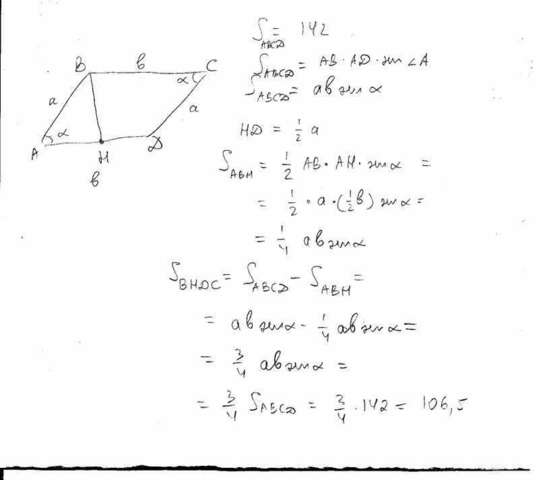 S_ABCD = 142
S_ABCD = AB · AD · sin ∠A
S_ABCD = ab sin α
HD = 1/2 a
S_ABH = 1/2 AB · AH · sin α =
= 1/2 · a · (1/2 b) sin α =
= 1/4 ab sin α
S_BHDC = S_ABCD - S_ABH =
= ab sin α - 1/4 ab sin α =
= 3/4 ab sin α =
= 3/4 S_ABCD = 3/4 · 142 = 106,5
B b C
α
a a
α
A H D
b